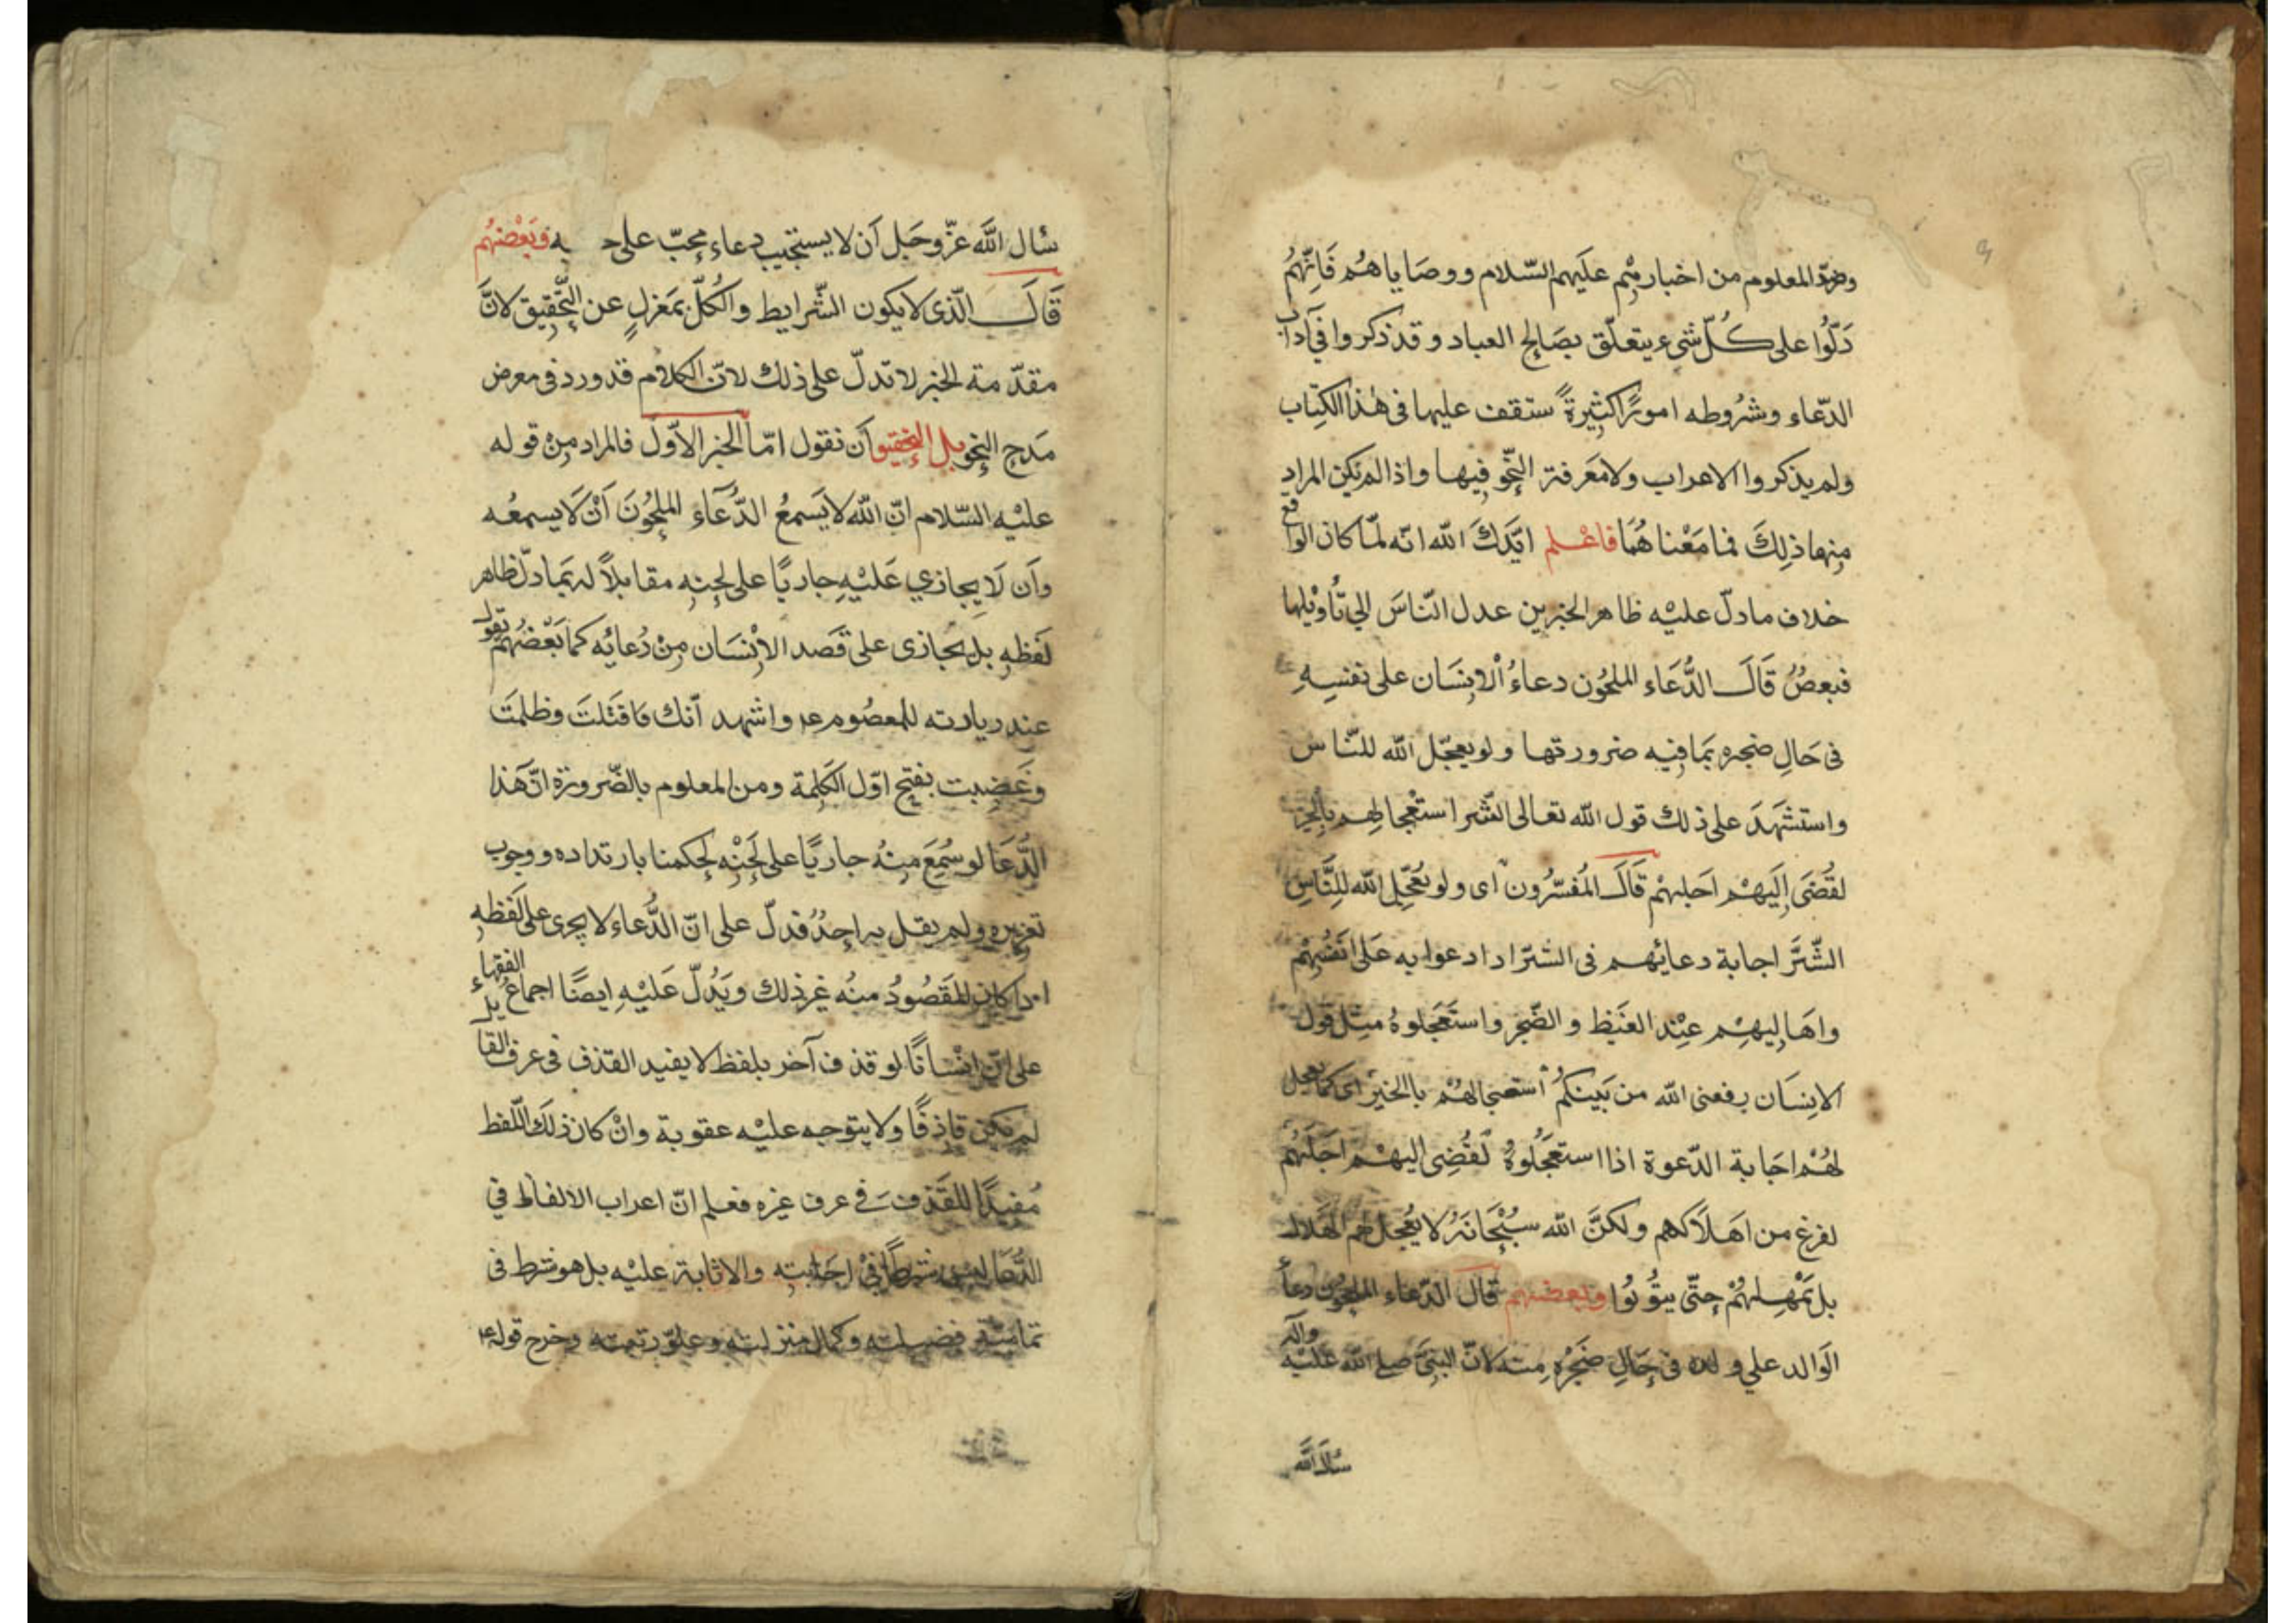 وضدّ المعلوم من اخبارهم عليهم السّلام ووصاياهم فَانّهُم
دَلّوُا على كُلّ شىء يتعلّق بصَالِح العباد وقد ذكروا في آداب
الدّعاء وشرُوطه امورًا كثيرةً ستقف عليها فى هٰذا الكِتاب
ولم يذكروا الاعراب ولا مَعرفة النّحو فيها واذا لم يكن المراد
منهما ذلِكَ فما مَعْناهُمَا فاعْلم ايّدَكَ الله انه لمّا كان الواقع
خلاف ما دلّ عليْه ظاهر الخبرين عدل النّاسَ الي تأويْلها
فبعضُ قَالَ الدُّعَاء الملحُون دعاءُ الانِسَان على نفسِهِ
فى حَالِ ضجره بمَا فِيه ضرورتها ولو يعجّل الله للنّاس
واستشهَدَ على ذلك قول الله تعالى الشّر استعْجالهم بالخير
لقُضَى إليَهْم اجلهْم قَالَ المُفسّرُون اى ولو يُعَجِّل الله للِنَّاسِ
الشّرَّ اجابة دعائهم فى الشرّ اذا دعوا به عَلى انفُسِهِمْ
واهَاليهِم عِنْد الغَيظ والضّجر واستَعجَلوهُ مثِل قول
الانِسَان رفعنى الله من بَينكمُ استعجالهُم بالخَير اى كما يعجل
لهُمْ اجَابة الدّعوة اذا استعجَلُوهُ لَقُضِى اليهْم اجَلهُمْ
لفرغ من اهَلاَكهم ولكنَّ الله سبُحْانَهُ لا يُعجل لهم الهَلاك
بل يمْهِلهُمْ حتّى يتوُبُوا وبعضهم قال الدّعاء الملحُون دعآء
الوَالد علي ولده فى حَالِ ضَجرُه منِه لانّ النبىّ صلى الله عليْه وآله
سَألَ اللهَ
سَأل الله عزّ وجَل أن لا يستجيب دعاء محِبّ على حبيبه وبَعْضهُم
قَالَ الّذى لا يكون الشّرايط والكُلّ بمَعْزلٍ عن التّحقيق لانَّ
مقدّمة الخبر لا تدلّ على ذلك لانّ الكلام قد ورد فى معرض
مَدح النحو بل التحقيق أن نقول امّا الخبر الاوّل فالمراد مِنْ قوله
عليْه السّلام انّ الله لا يَسمعُ الدّعَآء الملحُونَ أنْ لا يسمعُه
وأن لا يجازي عَليْهِ جاريًا على لحنِه مقابلاً له بَمادلّ ظاهر
لَفظِه بل يجازى على قَصد الاِنْسَان مِنْ دُعائِه كما بَعْضهُمْ يَقول
عند زيارته للمعصُوم ع واشهد أنّك قَد قَتَلتَ وظلمَتَ
وغَصَبت بفتح اوّل الكَلِمة ومن المعلوم بالضّرورة انّ هَذا
الدُّعَا لو سُمِعَ منِهُ جاريًا على لَحْنِه لحكمنا بارتداده ووجوب
تعزيره ولم يقل به احدُ فدلّ على انّ الدُّعاء لا يجرى على لَفظهِ
اذا كان المقَصُودُ منُه غير ذلك ويَدُلّ عَليْهِ ايضًا اجماعُ الفقهاء
على انّ انِسْانًا لو قذف آخر بلفظ لا يفيد القذف فى عرف القايل
لم يكن قاذفًا ولا يتوجه عليْه عقوبة وانْ كان ذلكَ اللّفظ
مُفيدًا للقَذف في عرف غيره فعلم انّ اعراب الالفاظ في
الدُّعَا ليس شرطًا فىْ اجَابته والاثابة عليْه بل هو شرط فى
تماميّة فضيلته وكمال منزلته وعلوّ رتبته وخرج قوله ع